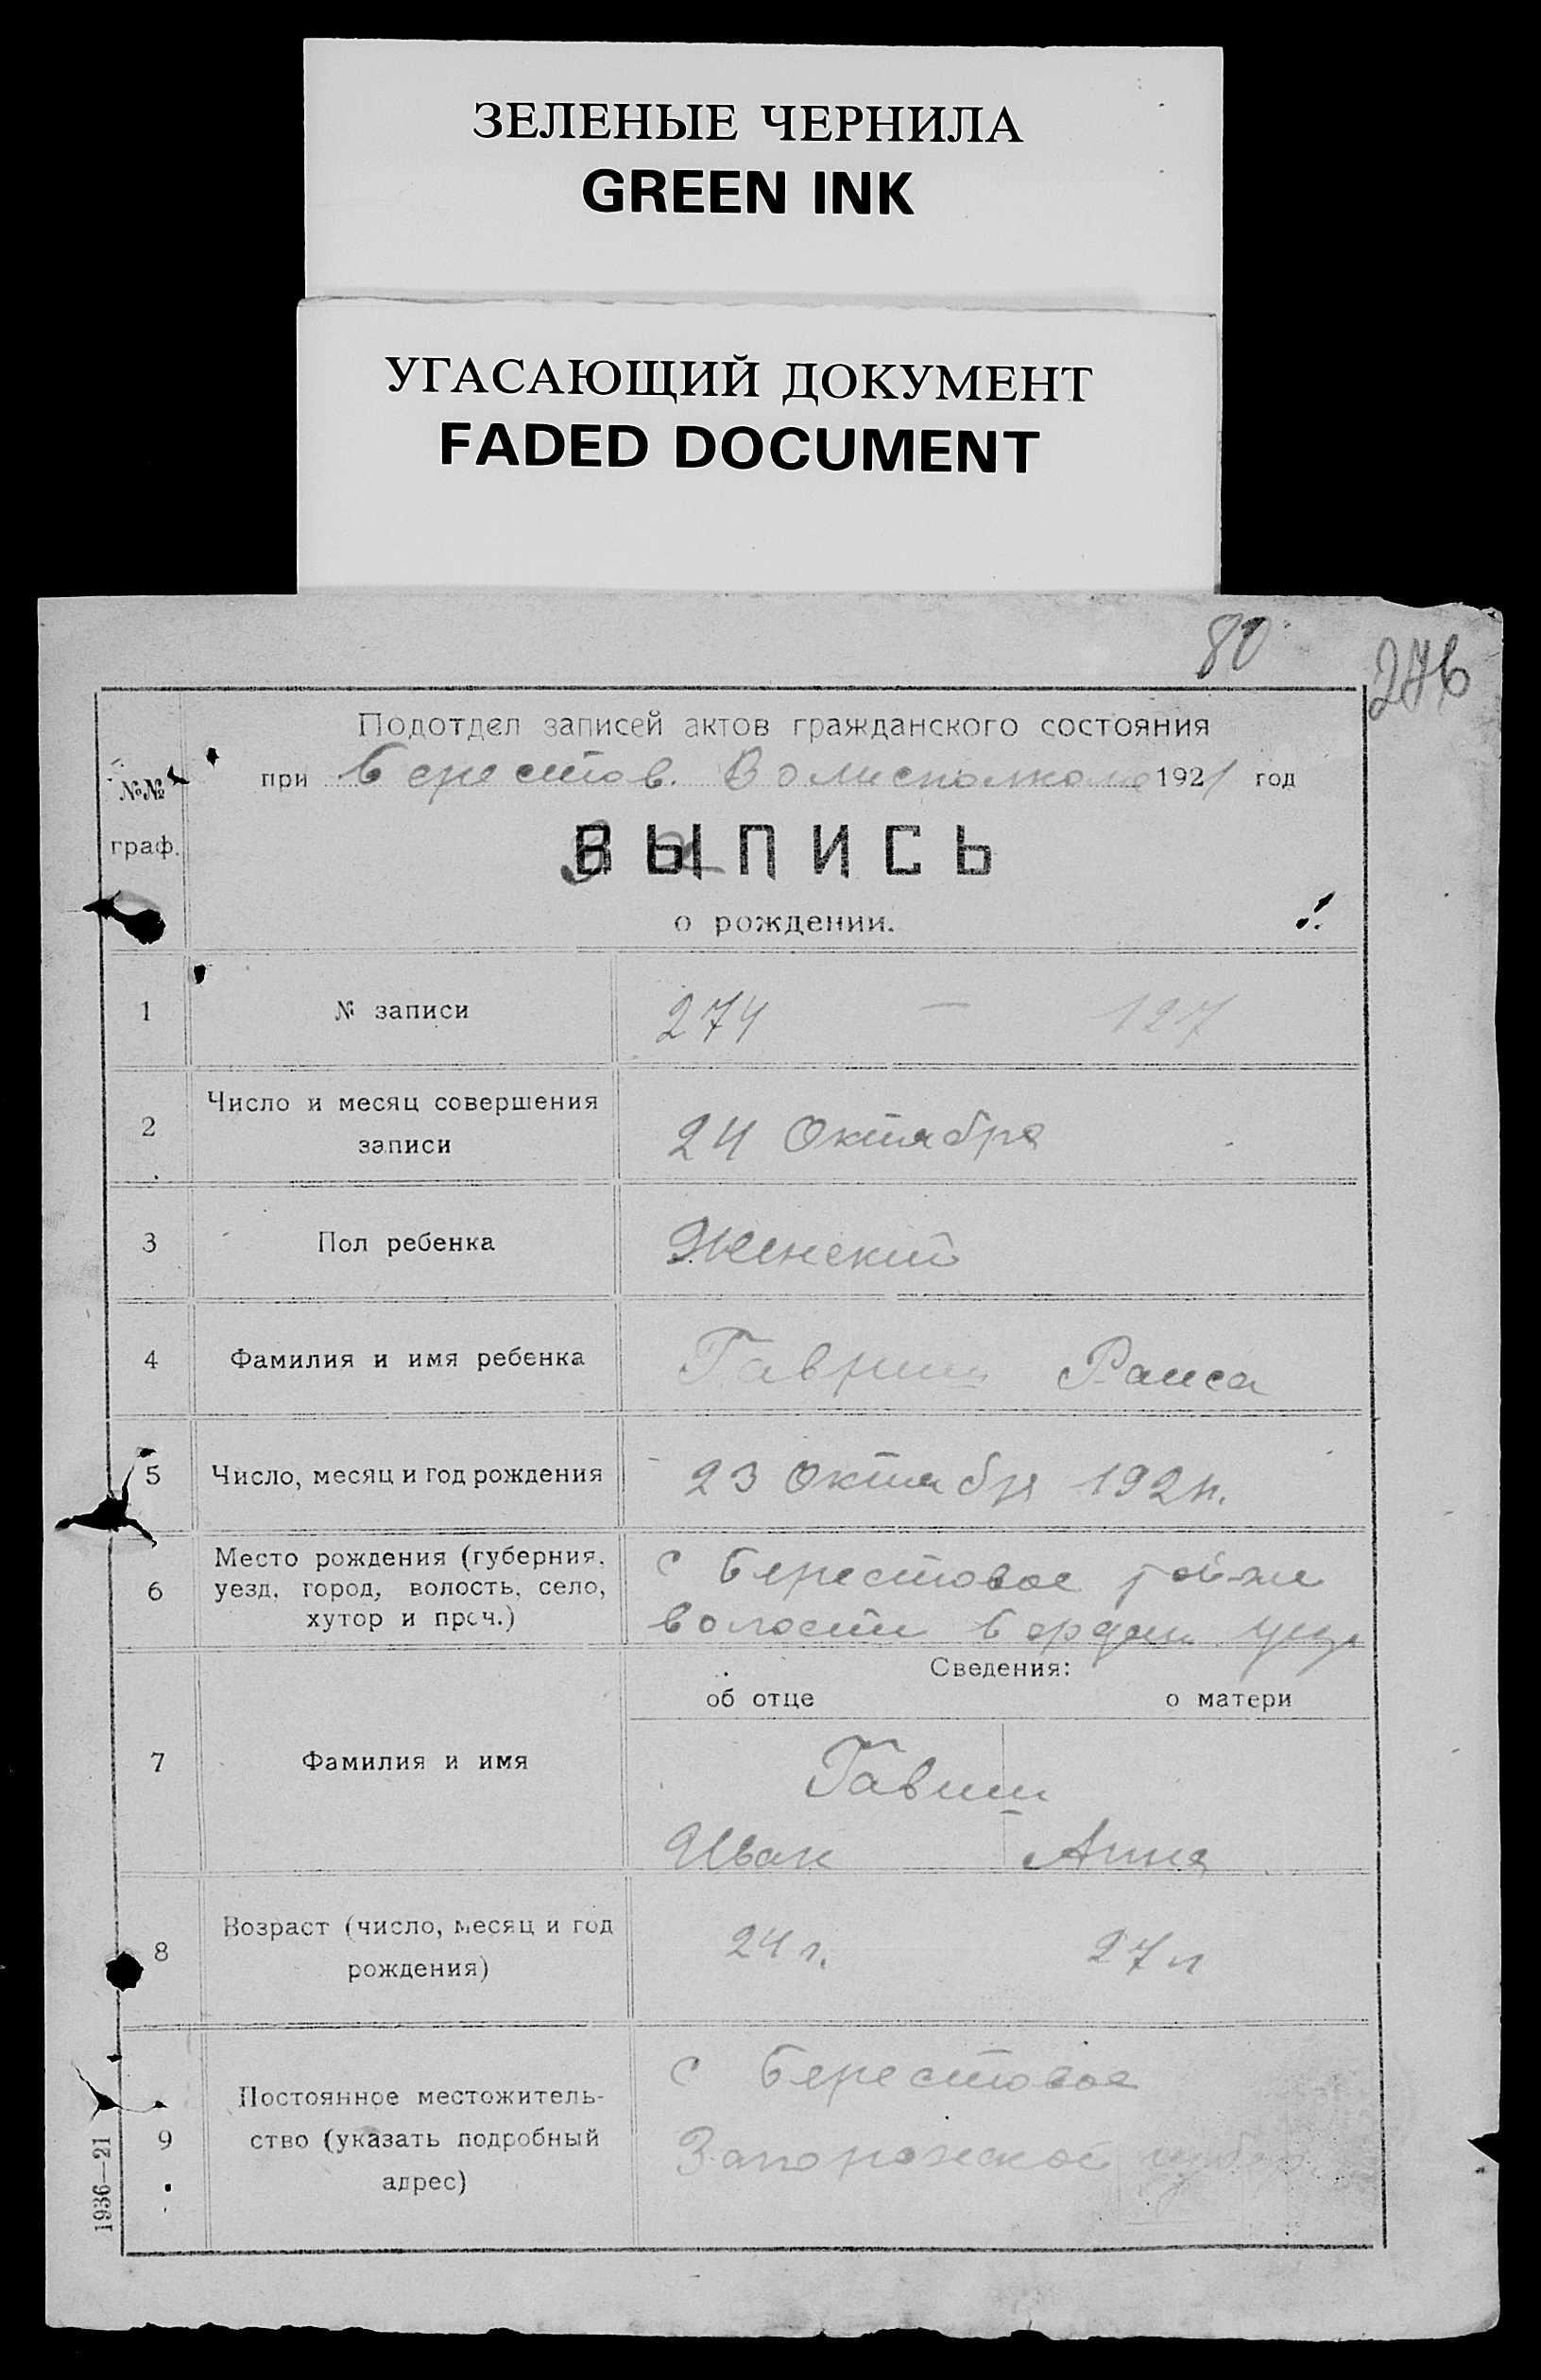 ЗЕЛЕНЫЕ ЧЕРНИЛА
GREEN INK
УГАСАЮЩИЙ ДОКУМЕНТ
FADED DOCUMENT
80
276
Подотдел записей актов гражданского состояния
№№ при Берестов. Волисполкоме 1921 год
граф. ВЫПИСЬ
о рождении.
1 № записи 274 — 127
2 Число и месяц совершения
записи 24 Октября
3 Пол ребенка Женский
4 Фамилия и имя ребенка Гавриш Раиса
5 Число, месяц и год рождения 23 Октября 1921г.
6 Место рождения (губерния,
уезд, город, волость, село,
хутор и проч.)
с Берестовое той-же
волости Бердян. уезд
Сведения:
об отце о матери
7 Фамилия и имя
Гавиш
Иван Анна
8 Возраст (число, месяц и год
рождения)
24 г. 27 л
9 Постоянное местожитель-
ство (указать подробный
адрес)
с Берестовое
Запорожской губер.
1936—21